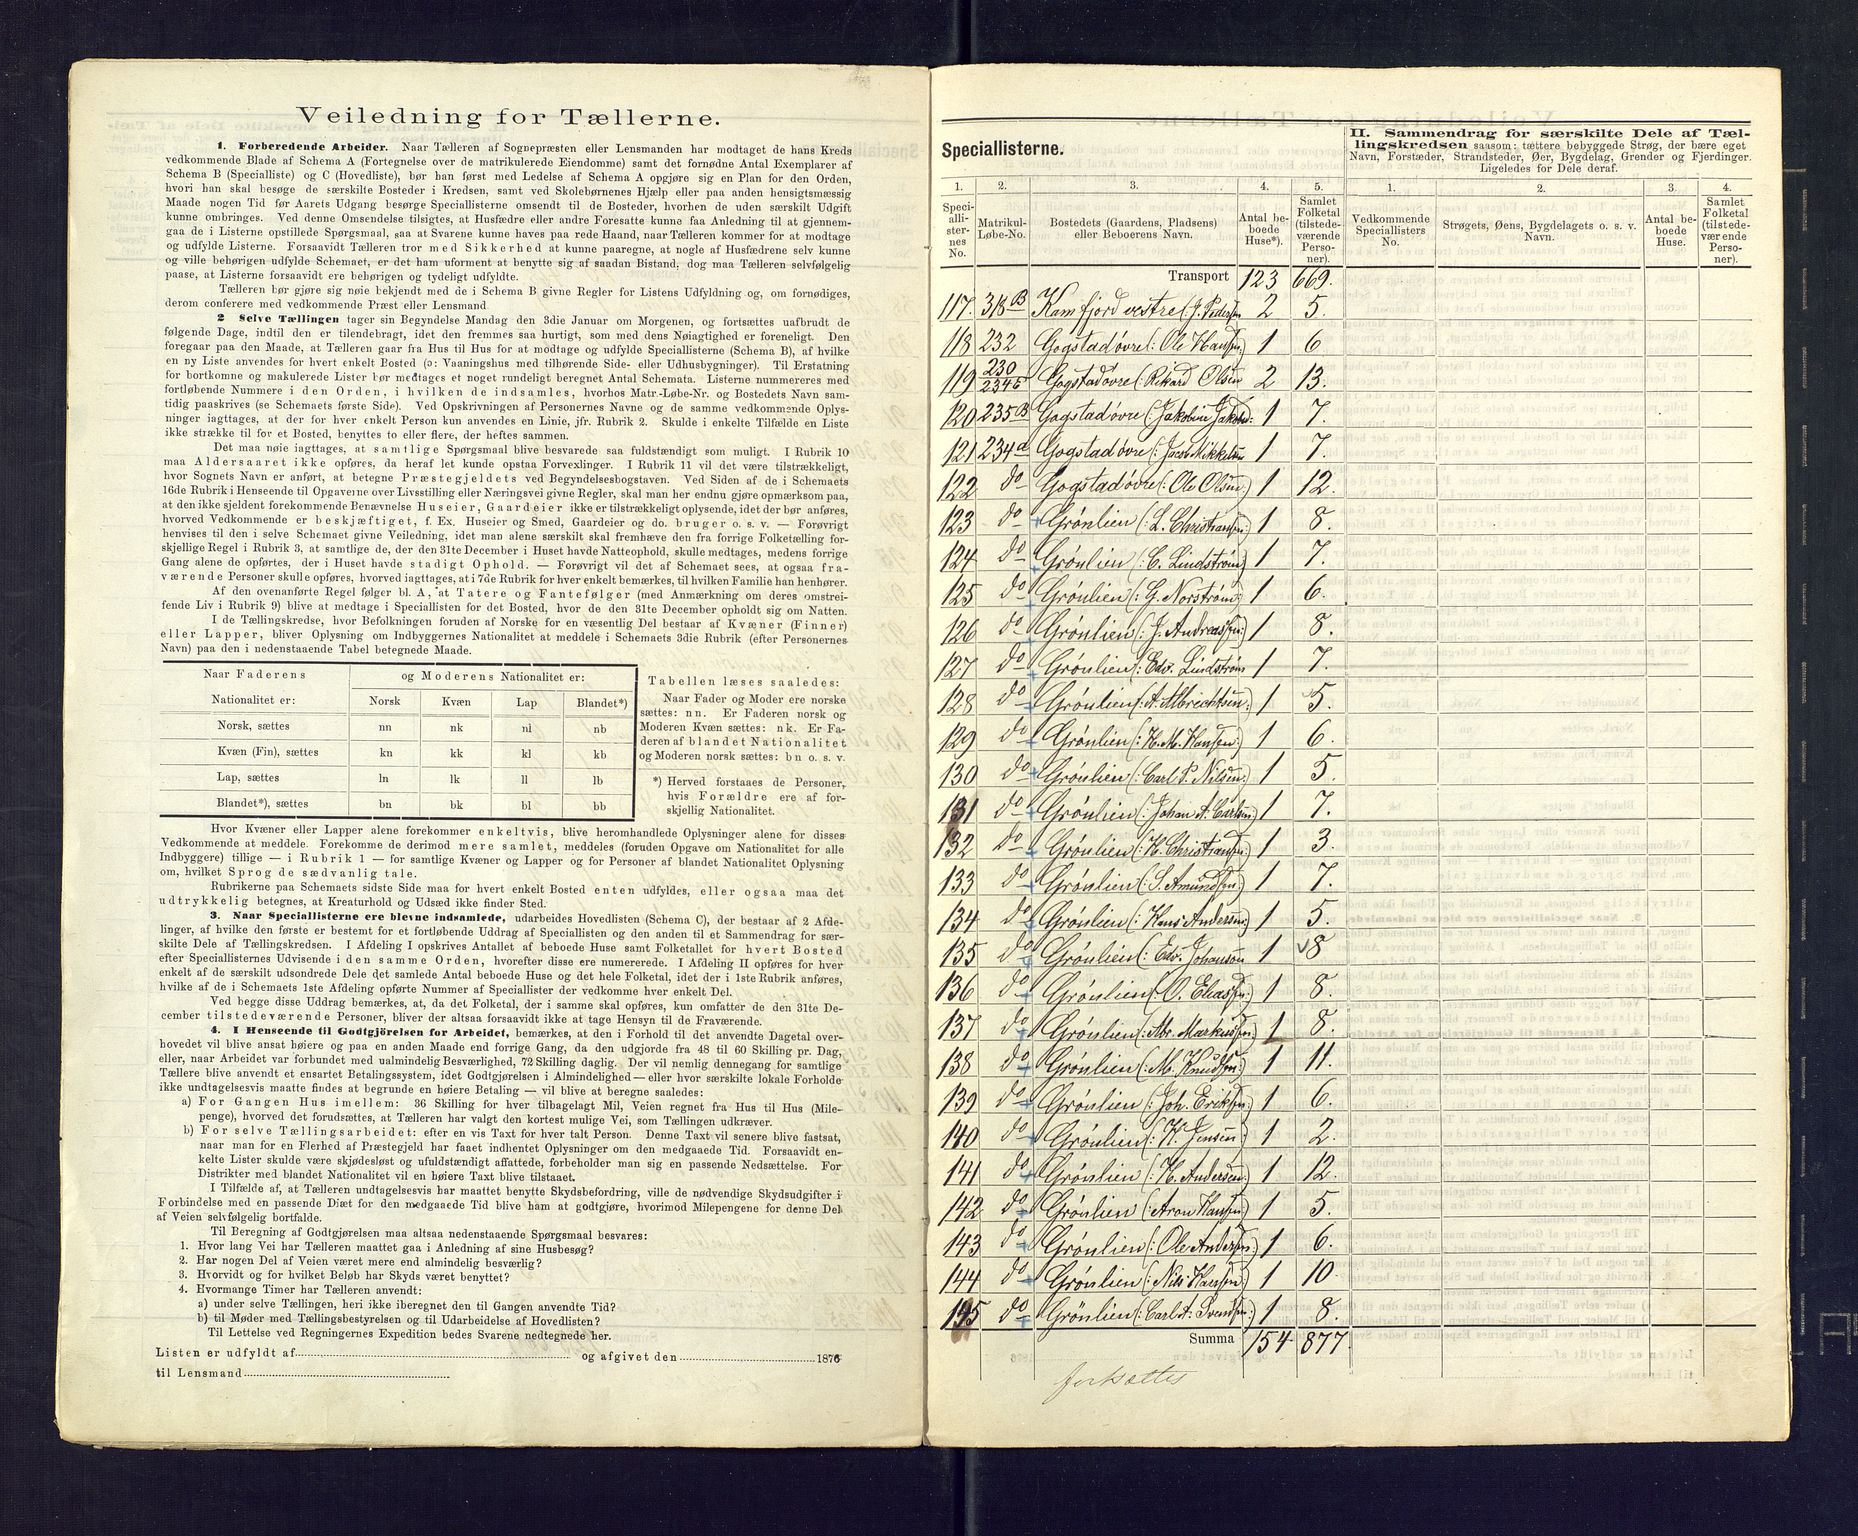 Veiledning for Tællerne.
1. Forberedende Arbeider. Naar Tælleren af Sognepræsten eller Lensmanden har modtaget de hans Kreds
vedkommende Blade af Schema A (Fortegnelse over de matrikulerede Eiendomme) samt det fornødne Antal Exemplarer af
Schema B (Specialliste) og C (Hovedliste), bør han først med Ledelse af Schema A opgjøre sig en Plan for den Orden,
hvori han skal besøge de særskilte Bosteder i Kredsen, samt ved Skolebørnenes Hjælp eller paa anden hensigtsmæssig
Maade nogen Tid før Aarets Udgang besørge Speciallisterne omsendt til de Bosteder, hvorhen de uden særskilt Udgift
kunne ombringes. Ved denne Omsendelse tilsigtes, at Husfædre eller andre Foresatte kunne faa Anledning til at gjennem-
gaa de i Listerne opstillede Spørgsmaal, saa at Svarene kunne haves paa rede Haand, naar Tælleren kommer for at modtage
og udfylde Listerne. Forsaavidt Tælleren tror med Sikkerhed at kunne paaregne, at nogle af Husfædrene selv kunne
og ville behørigen udfylde Schemaet, er det ham uforment at benytte sig af saadan Bistand, dog maa Tælleren selvfølgelig
paase, at Listerne forsaavidt ere behørigen og tydeligt udfyldte.
Tælleren bør gjøre sig nøie bekjendt med de i Schema B givne Regler for Listens Udfyldning og, om fornødiges,
derom conferere med vedkommende Præst eller Lensmand.
2 Selve Tællingen tager sin Begyndelse Mandag den 3die Januar om Morgenen, og fortsættes uafbrudt de
følgende Dage, indtil den er tilendebragt, idet den fremmes saa hurtigt, som med dens Nøiagtighed er foreneligt. Den
foregaar paa den Maade, at Tælleren gaar fra Hus til Hus for at modtage og udfylde Speciallisterne (Schema B), af hvilke
en ny Liste anvendes for hvert enkelt Bosted (ɔ: Vaaningshus med tilhørende Side- eller Udhusbygninger). Til Erstatning
for bortkomne og makulerede Lister bør medtages et noget rundeligt beregnet Antal Schemata. Listerne nummereres med
fortløbende Nummere i den Orden, i hvilken de indsamles, hvorhos Matr.-Løbe-Nr. og Bostedets Navn sam-
tidig paaskrives (se Schemaets første Side). Ved Opskrivningen af Personernes Navne og de samme vedkommende Oplys-
ninger iagttages, at der for hver enkelt Person kun anvendes en Linie, jfr. Rubrik 2. Skulde i enkelte Tilfælde en Liste
ikke strække til for et Bosted, benyttes to eller flere, der heftes sammen.
Det maa nøie iagttages, at samtlige Spørgsmaal blive besvarede saa fuldstændigt som muligt. I Rubrik 10
maa Aldersaaret ikke opføres, da heraf let kunde opstaa Forvexlinger. I Rubrik 11 vil det være tilstrækkeligt,
hvor Sognets Navn er anført, at betegne Præstegjeldets ved Begyndelsesbogstaven. Ved Siden af de i Schemaets
16de Rubrik i Henseende til Opgaverne over Livsstilling eller Næringsvei givne Regler, skal man her endnu gjøre opmærksom paa,
at den ikke sjeldent forekommende Benævnelse Huseier, Gaardeier ikke er tilstrækkeligt oplysende, idet der bør anføres,
hvorved Vedkommende er beskjæftiget, f. Ex. Huseier og Smed, Gaardeier og do. bruger o. s. v. — Forøvrigt
henvises til den i selve Schemaet givne Veiledning, idet man alene særskilt skal fremhæve den fra forrige Folketælling for-
skjellige Regel i Rubrik 3, at samtlige de, der den 31te December i Huset havde Natteophold, skulle medtages, medens forrige
Gang alene de opførtes, der i Huset havde stadigt Ophold. — Forøvrigt vil det af Schemaet sees, at ogsaa fra-
værende Personer skulle opføres, hvorved iagttages, at i 7de Rubrik for hver enkelt bemærkes, til hvilken Familie han henhører.
Af den ovenanførte Regel følger bl. A, at Tatere og Fantefølger (med Anmærkning om deres omstrei-
fende Liv i Rubrik 9) blive at medtage i Speciallisten for det Bosted, hvor de den 31te December opholdt sig om Natten.
I de Tællingskredse, hvor Befolkningen foruden af Norske for en væsentlig Del bestaar af Kvæner (Finner)
eller Lapper, bliver Oplysning om Indbyggernes Nationalitet at meddele i Schemaets 3die Rubrik (efter Personernes
Navn) paa den i nedenstaaende Tabel betegnede Maade.
Naar Faderens Nationalitet er: og Moderens Nationalitet er:
Norsk Kvæn Lap Blandet*)
Norsk, sættes nn nk nl nb
Kvæn (Fin), sættes kn kk kl kb
Lap, sættes ln lk ll lb
Blandet*), sættes bn bk bl bb
Tabellen læses saaledes:
Naar Fader og Moder ere norske
sættes: nn. Er Faderen norsk og
Moderen Kvæn sættes: nk. Er Fa-
deren af blandet Nationalitet
og Moderen norsk sættes: bn o. s. v.
*) Herved forstaaes de Personer,
hvis Forældre ere af for-
skjellig Nationalitet.
Hvor Kvæner eller Lapper alene forekommer enkeltvis, blive heromhandlede Oplysninger alene for disses
Vedkommende at meddele. Forekomme de derimod mere samlet, meddeles (foruden Opgave om Nationalitet for alle
Indbyggere) tillige — i Rubrik 1 — for samtlige Kvæner og Lapper og for Personer af blandet Nationalitet Oplysning
om, hvilket Sprog de sædvanlig tale.
Rubrikerne paa Schemaets sidste Side maa for hvert enkelt Bosted enten udfyldes, eller ogsaa maa det
udtrykkelig betegnes, at Kreaturhold og Udsæd ikke finder Sted.
3. Naar Speciallisterne ere blevne indsamlede, udarbeides Hovedlisten (Schema C), der bestaar af 2 Afde-
linger, af hvilke den første er bestemt for et fortløbende Uddrag af Speciallisten og den anden til et Sammendrag for sær-
skilte Dele af Tællingskredsen. I Afdeling I opskrives Antallet af beboede Huse samt Folketallet for hvert Bosted
efter Speciallisternes Udvisende i den samme Orden, hvorefter disse ere numererede. I Afdeling II opføres for hver
enkelt af de særskilt udsondrede Dele det samlede Antal beboede Huse og det hele Folketal, idet der i 1ste Rubrik anføres,
hvilke af de i Schemaets 1ste Afdeling opførte Nummer af Speciallister der vedkomme hver enkelt Del.
Ved begge disse Uddrag bemærkes, at, da det Folketal, der i samme skal opføres, kun omfatter de den 31te De-
cember tilstedeværende Personer, bliver der altsaa forsaavidt ikke at tage Hensyn til de Fraværende.
4. I Henseende til Godtgjörelsen for Arbeidet, bemærkes, at den i Forhold til det anvendte Dagetal over-
hovedet vil blive ansat høiere og paa en anden Maade end forrige Gang, da den udgjorde fra 48 til 60 Skilling pr. Dag,
eller, naar Arbeidet var forbundet med ualmindelig Besværlighed, 72 Skilling daglig. Der vil nemlig dennegang for samtlige
Tællere blive anvendt et ensartet Betalingssystem, idet Godtgjörelsen i Almindelighed — eller hvor særskilte lokale Forholde
ikke undtagelsesvis maatte findes at begrunde en høiere Betaling — vil blive at beregne saaledes:
a) For Gangen Hus imellem: 36 Skilling for hver tilbagelagt Mil, Veien regnet fra Hus til Hus (Mile-
penge), hvorved det forudsættes, at Tælleren har valgt den kortest mulige Vei, som Tællingen udkræver.
b) For selve Tællingsarbeidet: efter en vis Taxt for hver talt Person. Denne Taxt vil senere blive fastsat,
naar man for en Flerhed af Præstegjeld har faaet indhentet Oplysninger om den medgaaede Tid. Forsaavidt en-
kelte Lister skulde være skjødesløst og ufuldstændigt affattede, forbeholder man sig en passende Nedsættelse. For
Distrikter med blandet Nationalitet vil en høiere Taxt blive tilstaaet.
I Tilfælde af, at Tælleren undtagelsesvis har maattet benytte Skydsbefordring, ville de nødvendige Skydsudgifter i
Forbindelse med en passende Diæt for den medgaaede Tid blive ham at godtgjøre, hvorimod Milepengene for denne Del
af Veien selvfølgelig bortfalde.
Til Beregning af Godtgjørelsen maa altsaa nedenstaaende Spørgsmaal besvares:
1. Hvor lang Vei har Tælleren maattet gaa i Anledning af sine Husbesøg?
2. Har nogen Del af Veien været mere end almindelig besværlig?
3. Hvorvidt og for hvilket Beløb har Skyds været benyttet?
4. Hvormange Timer har Tælleren anvendt:
a) under selve Tællingen, heri ikke iberegnet den til Gangen anvendte Tid?
b) til Møder med Tællingsbestyrelsen og til Udarbeidelse af Hovedlisten?
Til Lettelse ved Regningernes Expedition bedes Svarene nedtegnede her.
Listen er udfyldt af og afgivet den 1876
til Lensmand
Speciallisterne.
II. Sammendrag for særskilte Dele af Tæl-
lingskredsen saasom: tættere bebyggede Strøg, der bære eget
Navn, Forstæder, Strandsteder, Øer, Bygdelag, Grender og Fjerdinger.
Ligeledes for Dele deraf.
1. 2. 3. 4. 5. 1. 2. 3. 4.
Speci-alli-ster-nes No. Matrikul-Løbe-No. Bostedets (Gaardens, Pladsens) eller Beboerens Navn. Antal be-boede Huse*). Samlet Folketal (tilstede-værende Perso-ner).
Vedkommende Speciallisters No. Strøgets, Øens, Bygdelagets o. s. v. Navn. Antal be-boede Huse. Samlet Folketal (tilstedevær ende Perso-ner).
Transport 123 669.
117. 318 B Kamfjord vestre (: J. Pedersen 2 5.
118 232 Gogstad øvre (: Ole Hansen:) 1 6
119 230 234 b Gogstad øvre (: Rikard Olsen 2 13.
120 235 B Gogstad øvre (: Jakobine Jakobs: 1 7.
121 234 a Gogstad øvre (: Jacob Mikkelsen 1 7.
122 do Gogstad øvre (: Ole Olsen:) 1 12.
123 do Grönlien (: L. Christiansen:) 1 8.
124 do Grönlien (: C. Lindström) 1 7.
125 do Grönlien (: G. Norström) 1 6.
126 do Grönlien (: J. Andreassen:) 1 8.
127 do Grönlien (: Edv. Lindström 1 7.
128 do Grönlien (: A. Albrechtsen:) 1 5.
129 do Grönlien (: H. M. Hansen:) 1 6.
130 do Grönlien (: Carl P. Nilsen:) 1 5.
131 do Grönlien (: Johan A. Carlsen) 1 7.
132 do Grönlien (: H. Christiansen) 1 3.
133 do Grönlien (: S. Amundsen) 1 7.
134 do Grönlien (: Hans Andersen:) 1 5.
135 do Grönlien (: Edv. Johanson 1 8
136 do Grönlien (: O. Eliassen) 1 8.
137 do Grönlien (: Abr. Markussen) 1 8.
138 do Grönlien (: M. Knudsen:) 1 11.
139 do Grönlien (: Joh. Eriksen) 1 6.
140 do Grönlien (: K. Jensen) 1 2.
141 do Grönlien (: H. Andersen:) 1 12.
142 do Grönlien (: Aron Hansen) 1 5.
143 do Grönlien (: Ole Andersen) 1 6.
144 do Grönlien (: Nils Hansen:) 1 10.
145 do Grönlien (: Carl A. Svendsen:) 1 8.
Summa 154 877.
forsættes